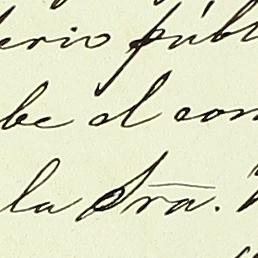 erio públ
be el con
la Sra.